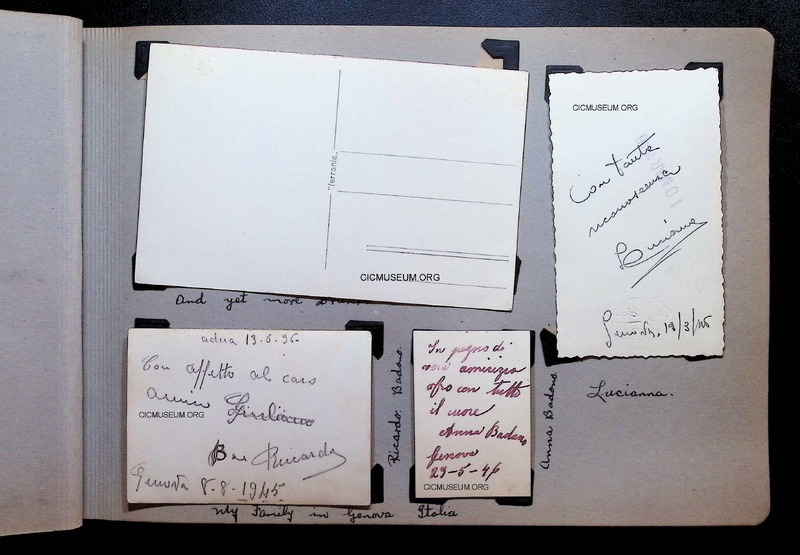 "Ferrania"
CICMUSEUM.ORG
And yet more
CICMUSEUM.ORG
Con tanta
riconoscenza
Luciana
Genova, 19/3/46
Lucianna.
adua 13.6.36
Con affetto al caro
amico Giuliano
CICMUSEUM.ORG
Ricardo
Genova 8-8-1945
Ricardo. Badano.
In pegno di
vera amicizia
offro con tutto
il cuore
Anna Badano
Genova
29-5-46
CICMUSEUM.ORG
Anna Badano
My Family in Genova Italia